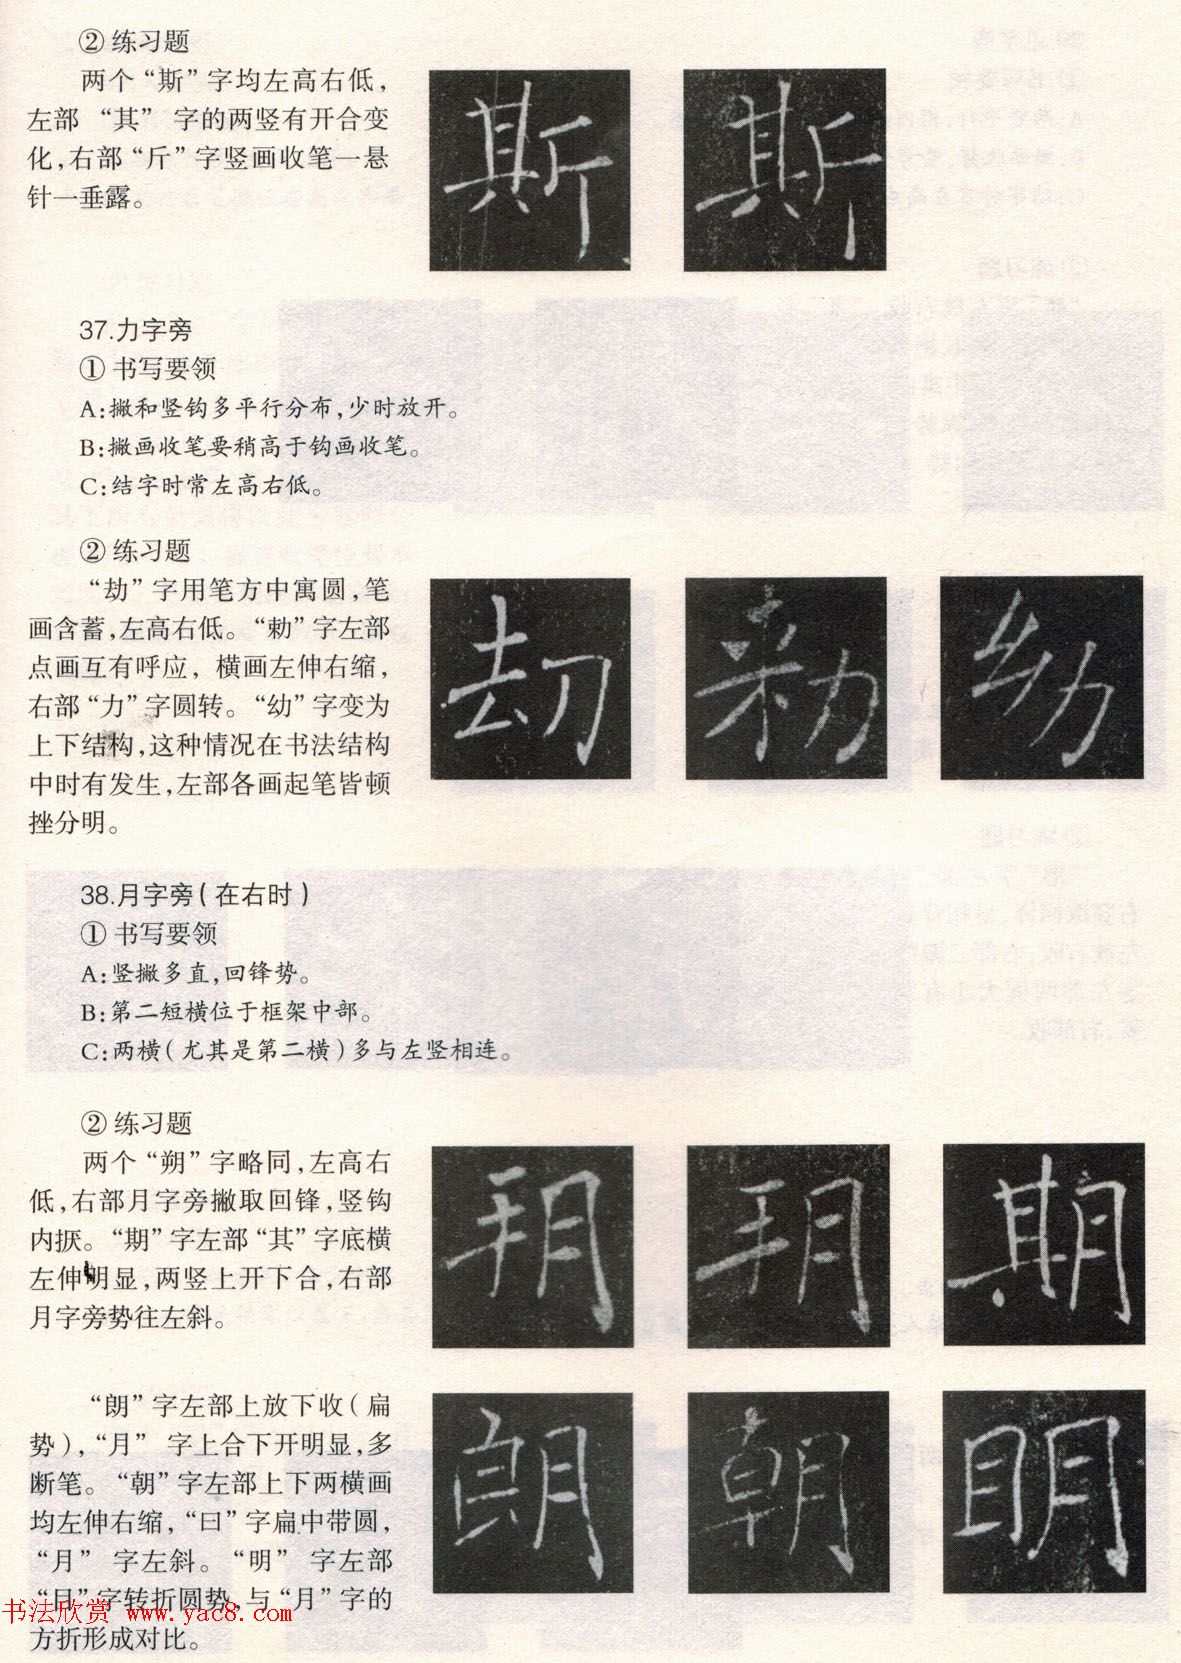 ② 练习题
两个“斯”字均左高右低，
左部“其”字的两竖有开合变
化，右部“斤”字竖画收笔一悬
针一垂露。
斯 斯
37.力字旁
① 书写要领
A：撇和竖钩多平行分布，少时放开。
B：撇画收笔要稍高于钩画收笔。
C：结字时常左高右低。
② 练习题
“劫”字用笔方中寓圆，笔
画含蓄，左高右低。“勅”字左部
点画互有呼应，横画左伸右缩，
右部“力”字圆转。“幼”字变为
上下结构，这种情况在书法结构
中时有发生，左部各画起笔皆顿
挫分明。
劫 勅 幼
38.月字旁（在右时）
① 书写要领
A：竖撇多直，回锋势。
B：第二短横位于框架中部。
C：两横（尤其是第二横）多与左竖相连。
② 练习题
两个“朔”字略同，左高右
低，右部月字旁撇取回锋，竖钩
内抠。“期”字左部“其”字底横
左伸明显，两竖上开下合，右部
月字旁势往左斜。
朔 朔 期
“朗”字左部上放下收（扁
势），“月”字上合下开明显，多
断笔。“朝”字左部上下两横画
均左伸右缩，“曰”字扁中带圆，
“月”字左斜。“明”字左部
“目”字转折圆势，与“月”字的
方折形成对比。
朗 朝 明
书法欣赏 www.yac8.com